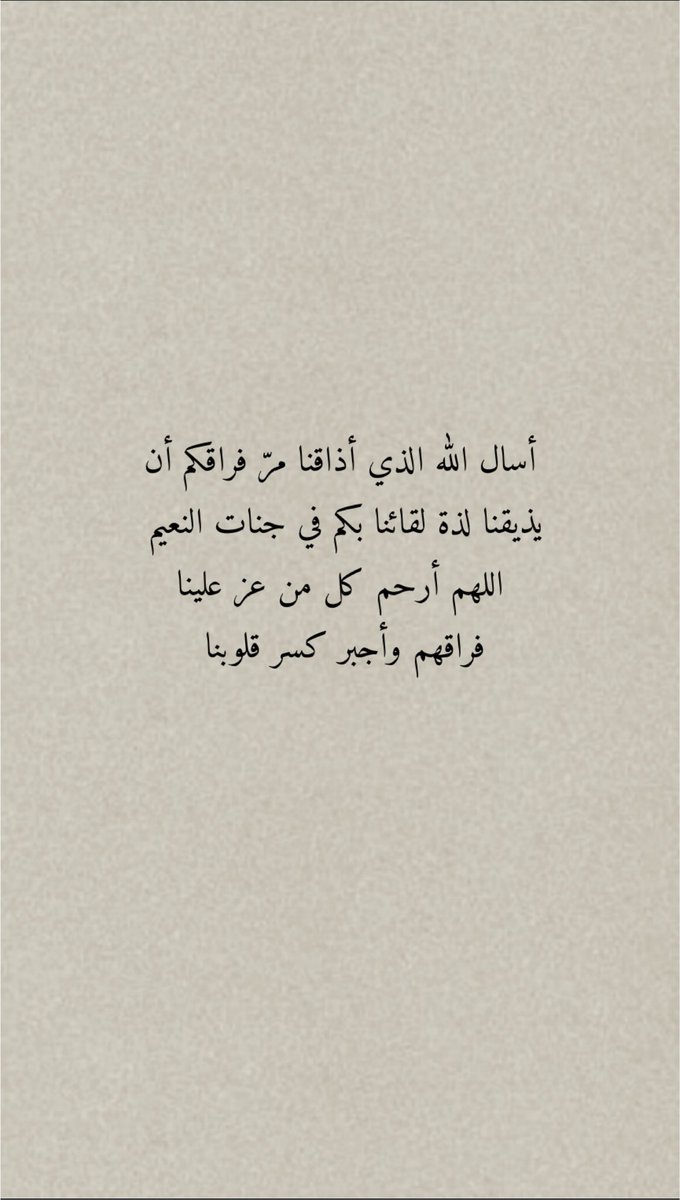 أسال الله الذي أذاقنا مرّ فراقكم أن
يذيقنا لذة لقائنا بكم في جنات النعيم
اللهم أرحم كل من عز علينا
فراقهم وأجبر كسر قلوبنا